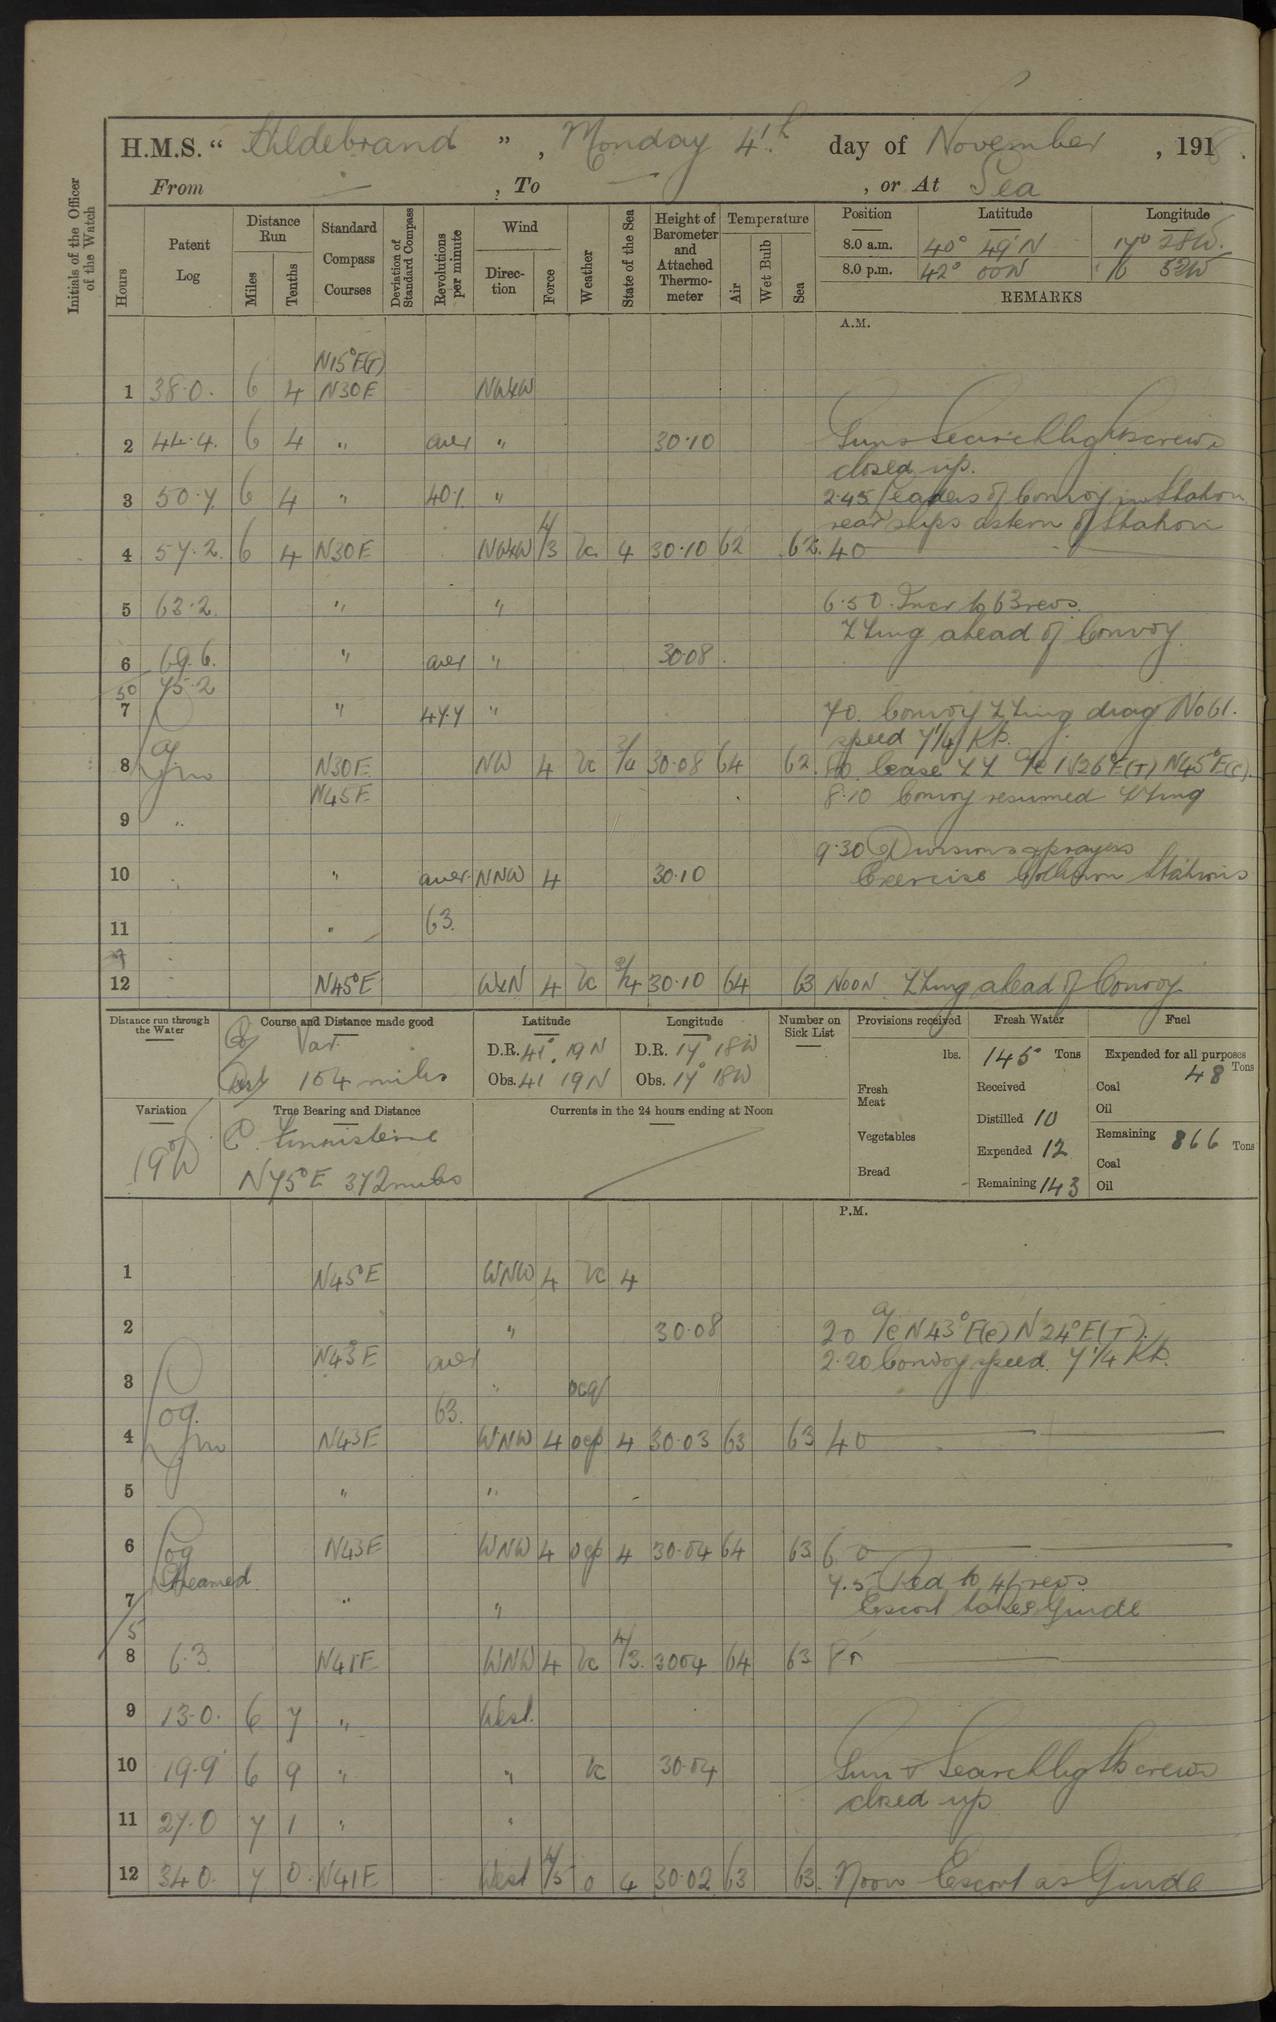 H.M.S. " Hildebrand ", Monday 4th day of November, 1918.
From — , To — , or At Sea
Initials of the Officer of the Watch
Hours
Patent Log
Distance Run
Miles
Tenths
Standard Compass Courses
Deviation of Standard Compass
Revolutions per minute
Wind
Direction
Force
Weather
State of the Sea
Height of Barometer and Attached Thermometer
Temperature
Air
Wet Bulb
Sea
Position Latitude Longitude
8.0 a.m. 40° 49'N 17° 28W.
8.0 p.m. 42° 00N 16 52W
REMARKS
A.M.
N15°E(T)
1 38·0. 6 4 N30E NWxW
2 44·4. 6 4 " aver " 30·10 Guns Searchlight crews
closed up.
3 50·7. 6 4 " 40·1. " 2·45 Leaders of Convoy in Station
rear ships astern of Station
4 57·2. 6 4 N30E NWxW 4/3 bc 4 30·10 62 62. 40
5 63·2. " " 6·50. Incr to 63 revs.
ZZing ahead of Convoy
6 69·6. " aver " 30·08
50 75·2
7 " 47.7 " 70. Convoy ZZing diag No 61.
speed 7 1/4 Kts.
8 N30E NW 4 bc 3/4 30·08 64 62. 80. Cease ZZ a/c N26°E(T) N45°E(C).
N45E 8·10 Convoy resumed ZZing
9 "
9·30 Divisions & prayers
10 " aver. NNW 4 30·10 Exercise Collision Stations
11 " 63.
12 N45°E WxN 4 bc 3/4 30·10 64 63 NOON ZZing ahead of Convoy
Distance run through the Water
Course and Distance made good
Co Var.
Dist 154 miles
Latitude
D.R. 41° 19N
Obs. 41 19N
Longitude
D.R. 17° 18W
Obs. 17° 18W
Number on Sick List
Provisions received
lbs.
Fresh Meat
Vegetables
Bread
Fresh Water
145 Tons
Received
Distilled 10
Expended 12
Remaining 143
Fuel
Expended for all purposes
48 Tons
Coal
Oil
Remaining 866 Tons
Coal
Oil
Variation
19°W
True Bearing and Distance
C. Finnisterre
N75°E 372 miles
Currents in the 24 hours ending at Noon
P.M.
1 N45°E WNW 4 bc 4
2 " 30·08 20 a/c N43°E(C) N24°E(T).
N43E aver 2·20 Convoy speed. 7 1/4 Kts.
3 " ocq
63.
4 Log N43E WNW 4 ocp 4 30·03 63 63 40
5 " "
6 Log N43E WNW 4 ocp 4 30·04 64 63 6. 0
Streamed 7.5 Red to 41 revs.
7 " " Escort takes Guide
5
8 6·3 N41E WNW 4 bc 4/3. 3004 64 63 80
9 13·0. 6 7 " West.
10 19·9 6 9 " " bc 30·04 Gun & Searchlight crews
closed up
11 27·0 7 1 " "
12 34·0. 7 0. N41E West 4/5 o 4 30·02 63 63. Noon Escort as Guide